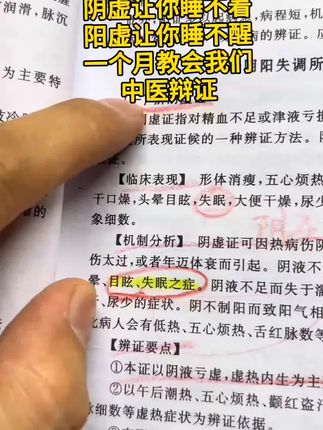 阴虚让你睡不着
阳虚让你睡不醒
一个月教会我们
中医辩证
润滑，脉沉
病程短，机
的辨证。
阴阳失调所
为主要特
虚证指对精血不足或津液亏损
所表现证候的一种辨证方法。
【临床表现】 形体消瘦，五心烦热
干口燥，头晕目眩，失眠，大便干燥，尿少
象细数。
【机制分析】 阴虚证可因热病伤阴
伤太过，或者年迈体衰而引起。阴液不
晕、目眩、失眠之症。阴液不足而失于濡
、尿少的症状。阴不制阳而致阳气相
比病人会有低热、五心烦热、舌红脉数等
【辨证要点】
①本证以阴液亏虚，虚热内生为主
②以午后潮热，五心烦热、颧红盗汗
细数等虚热症状为辨证依据。